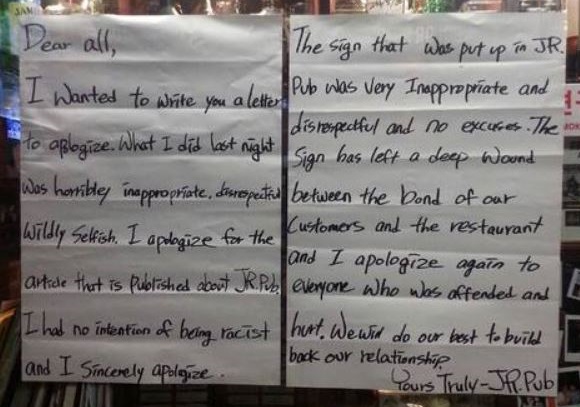 Dear all,
I Wanted to write you a letter
to aplogize. What I did last night
was horribley inappropriate, disrespectful
Wildly Selfish. I apologize for the
article that is Published about JR.Pub.
I had no intention of being racist
and I Sincerely apologize.
The Sign that was put up in JR.
Pub was Very Inappropriate and
disrespectful and no excuses. The
Sign has left a deep wound
between the bond of our
Customers and the restaurant
and I apologize again to
everyone who was offended and
hurt. We will do our best to build
back our relationship
Yours Truly-JR.Pub